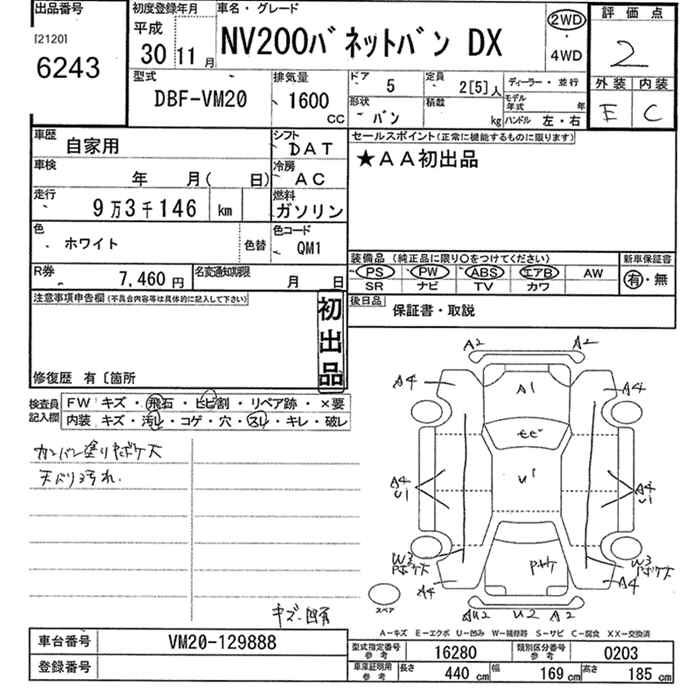 出品番号
[2120]
6243
初度登録年月
平成
30 11 月
車名・グレード
NV200バネットバン DX
2WD
・
4WD
評価点
2
外装 内装
E C
型式
DBF-VM20
排気量
1600 CC
ドア 5
定員 2[5]人
ディーラー・並行
形状 バン
積載 kg
モデル年式 年
ハンドル 左・右
車歴 自家用
シフト DAT
セールスポイント(正常に機能するものに限ります)
★AA初出品
車検 年 月( 日)
冷房 AC
走行 9万3千146 km
燃料 ガソリン
色 ホワイト 色替
色コード QM1
装備品 (純正品に限り○をつけてください)
新車保証書
PS PW ABS エアB AW
有・無
SR ナビ TV カワ
R券 7,460 円
名変通知期限 月 日
後日品 保証書・取説
注意事項申告欄(不具合内容等は具体的に記入して下さい)
初出品
修復歴 有〔箇所
検査員記入欄
FW キズ・飛石・ヒビ割・リペア跡・×要
内装 キズ・汚レ・コゲ・穴・スレ・キレ・破レ
カンバン塗りヤボケ大
天バリ汚れ.
キズ・凹有
A2 A2
A4 A1 A4
モビ
A4 U1 U1 A4 U1
W3 W3
A4 A4
U2 A2
スペア
A-キズ E-エクボ U-凹み W-補修跡 S-サビ C-腐食 XX-交換済
車台番号 VM20-129888
型式指定番号 参考 16280
類別区分番号 参考 0203
登録番号
車庫証明用 参考 長さ 440 cm 幅 169 cm 高さ 185 cm